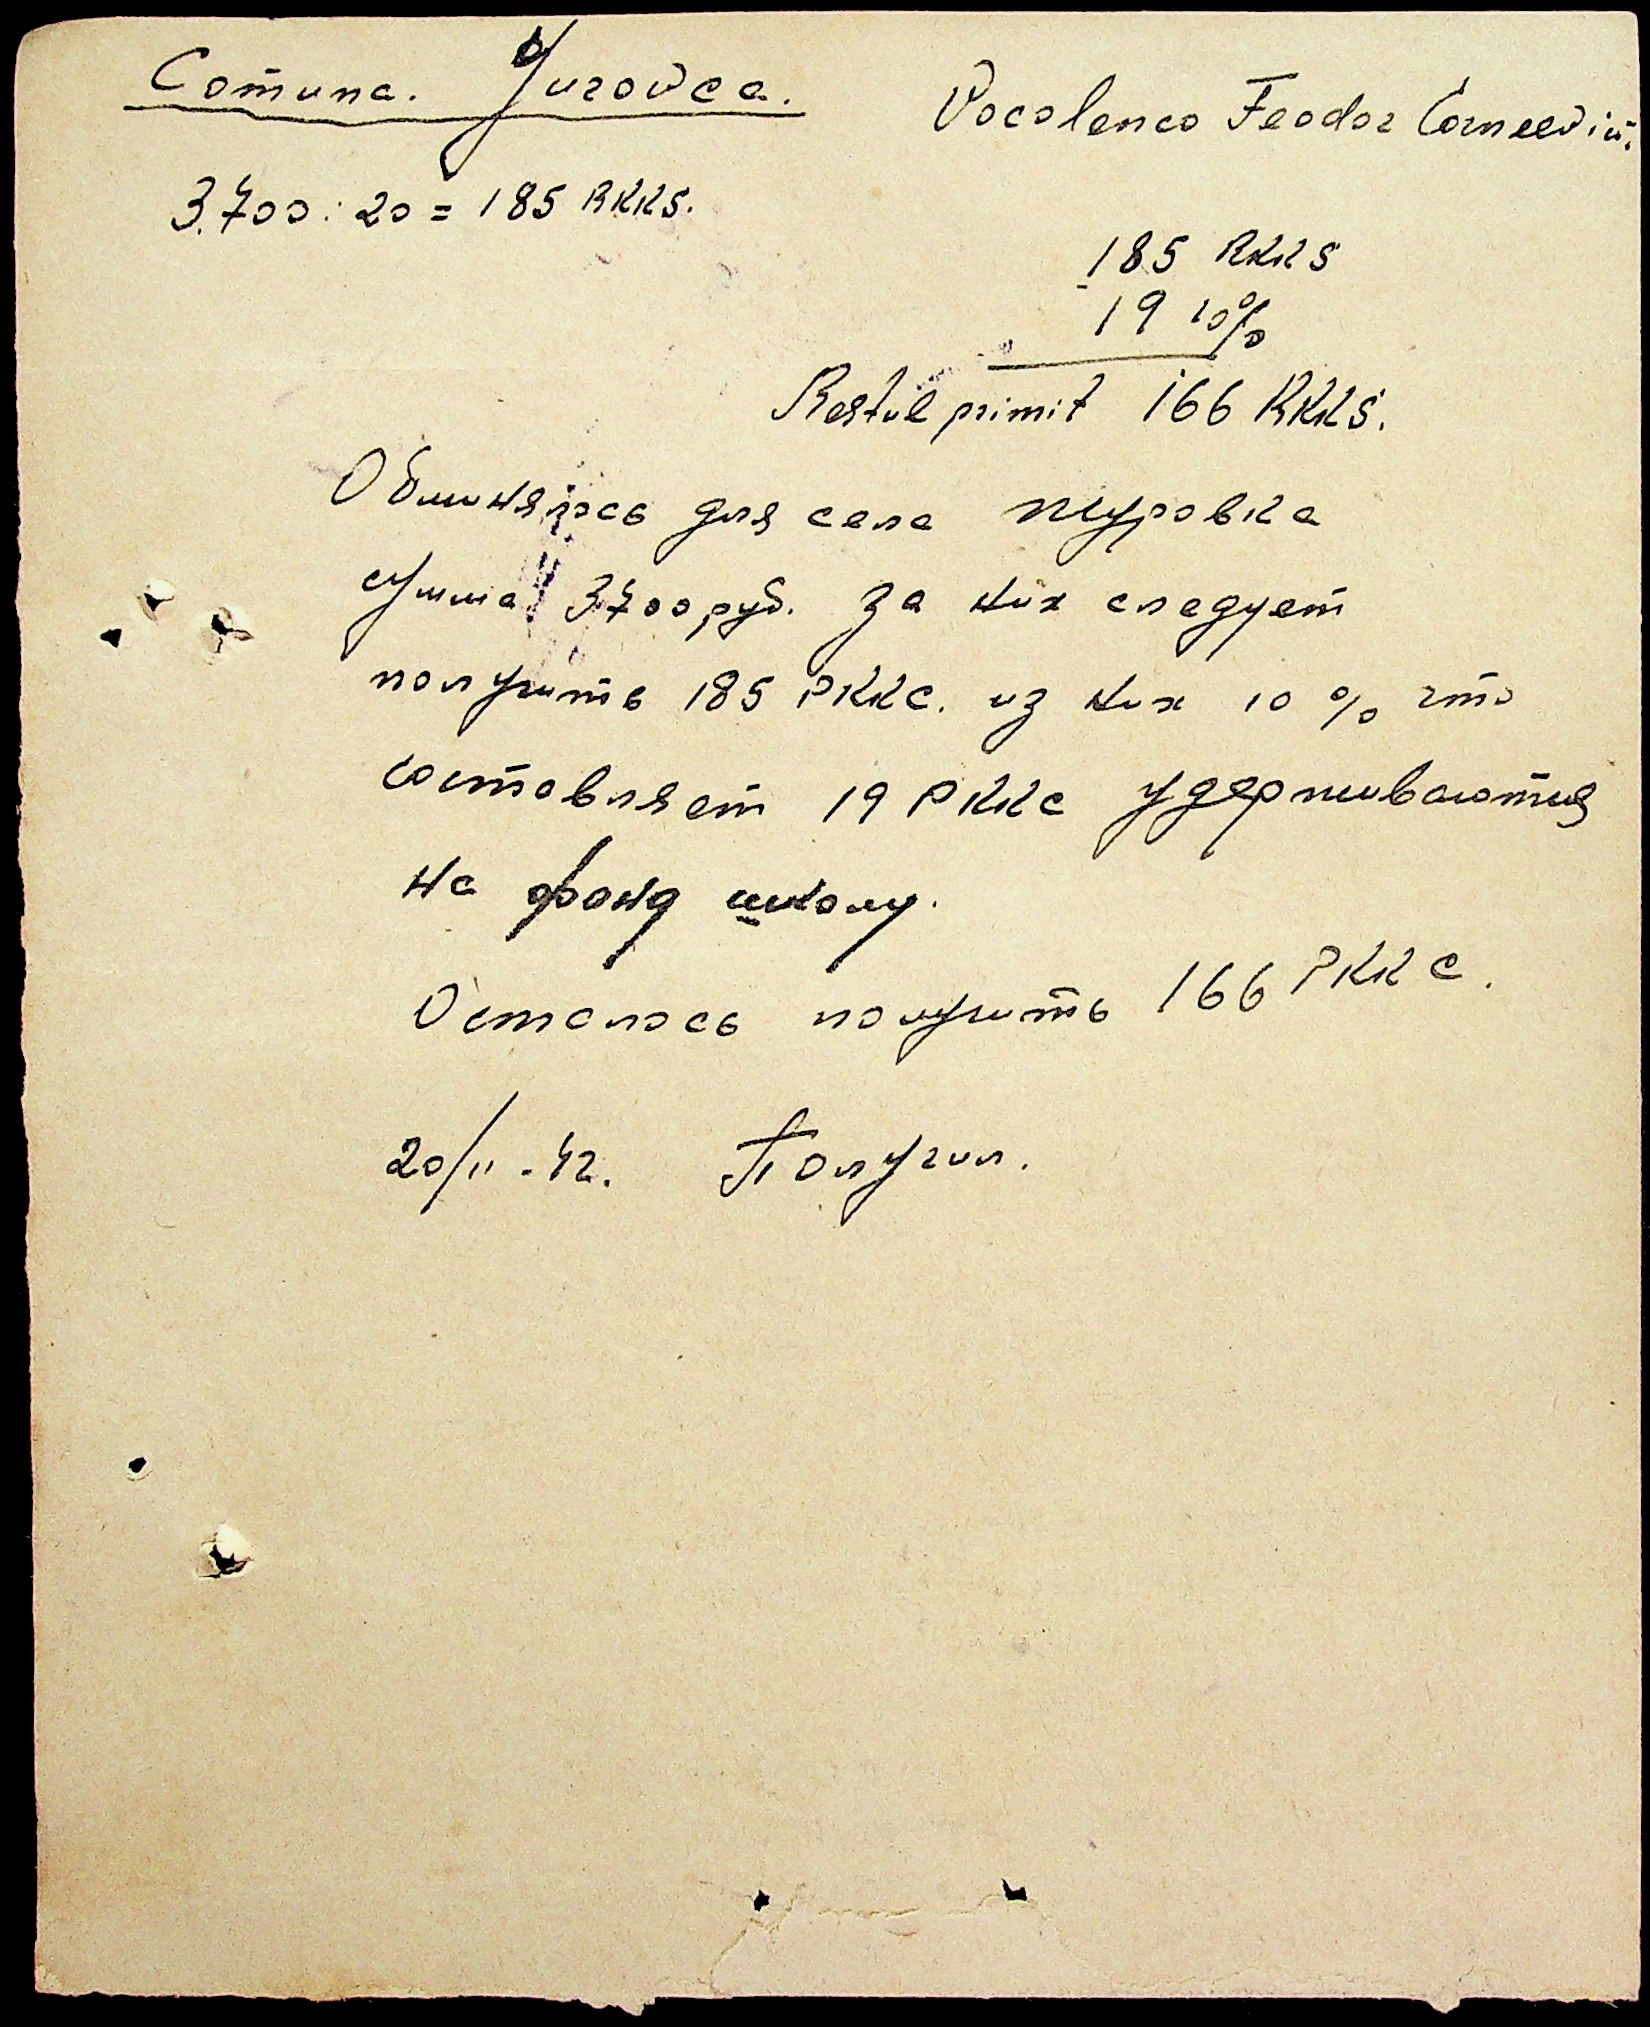 Comuna. Jurovca.
Vocolenco Feodor Corneevici.
3.700 : 20 = 185 RKKS.
185 RKKS
- 19 10%
Restul primit 166 RKKS.
Обминялось для села Журовка
сумма 3.700 руб. За них следует
получить 185 РККС. из них 10 % что
составляет 19 РККС удерживаются
на фонд школу.
Осталось получить 166 РККС.
20/II - 42. Получил.